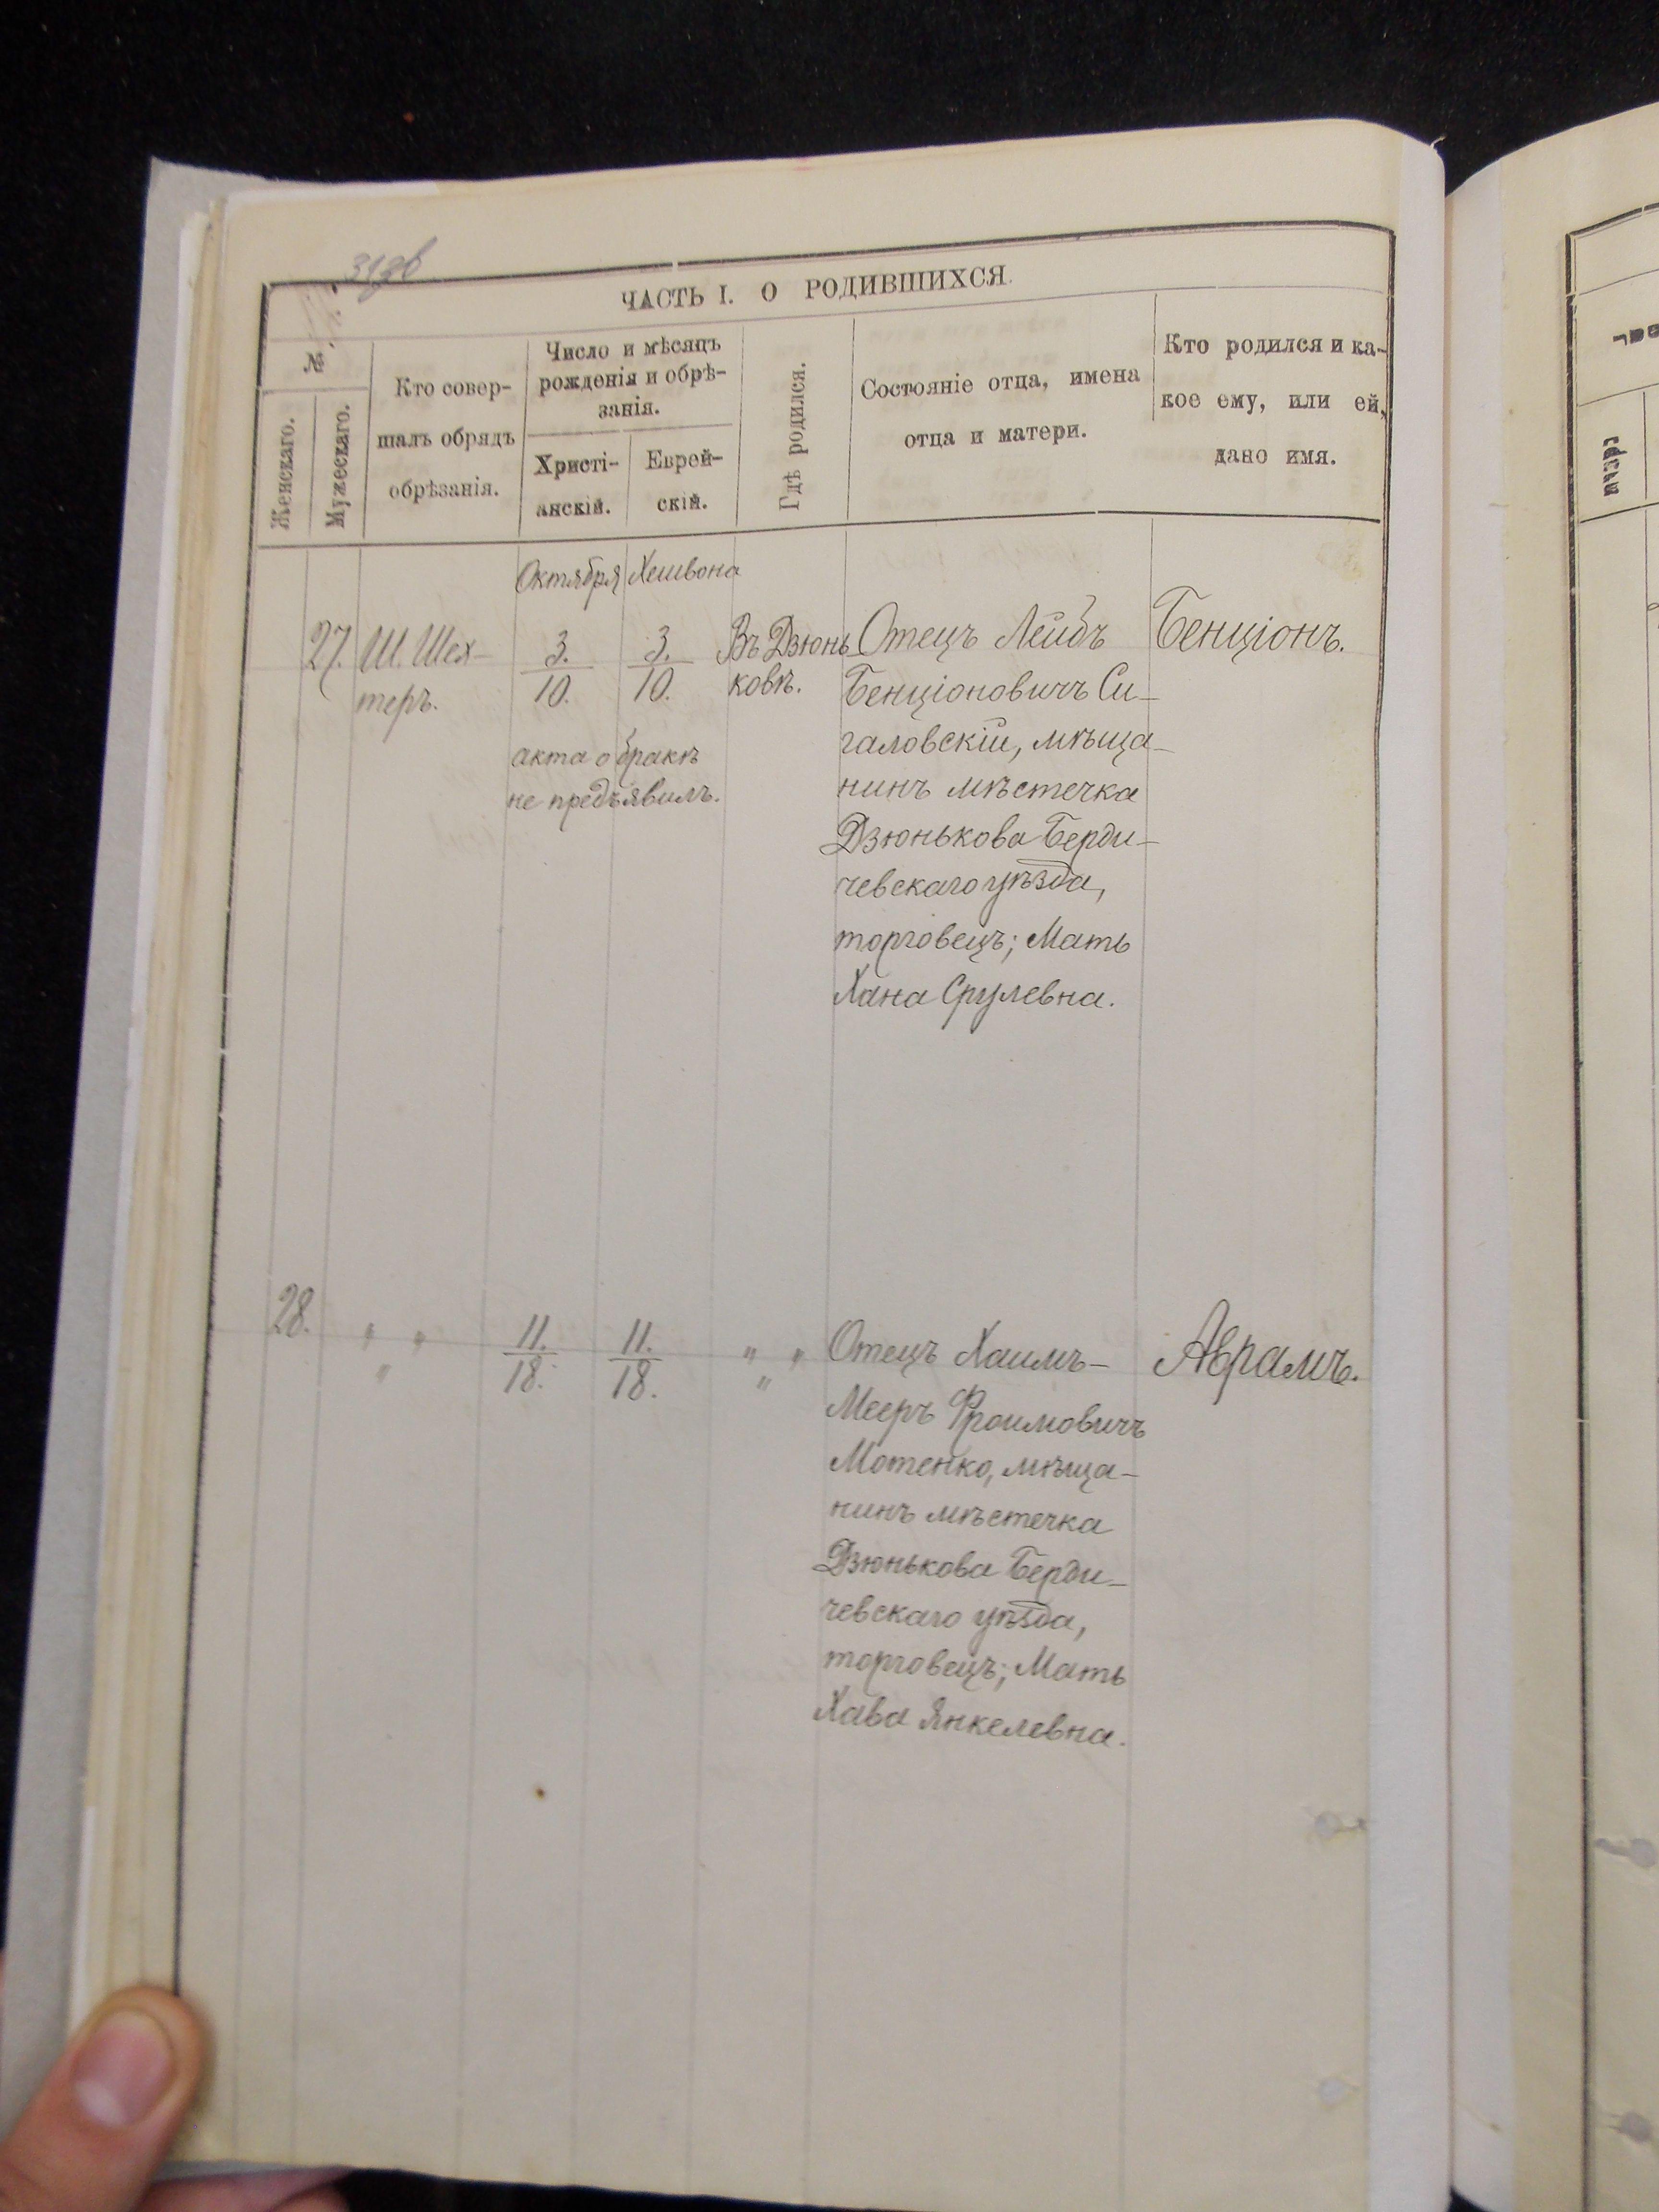 ЧАСТЬ I. О РОДИВШИХСЯ.
№
Женскаго.
Мужескаго.
Кто совер-
шалъ обрядъ
обрѣзанія.
Число и мѣсяцъ
рожденія и обрѣ-
занія.
Христі-
анскій.
Еврей-
скій.
Гдѣ родился.
Состояніе отца, имена
отца и матери.
Кто родился и ка-
кое ему, или ей,
дано имя.
Октября Хешвона
27. Ш. Шех-
теръ.
3.
10.
3.
10.
Въ Дзюнь-
ковѣ.
акта о бракѣ
не предъявилъ.
Отецъ Лейбъ
Бенціоновичъ Си-
галовскій, мѣща-
нинъ мѣстечка
Дзюнькова Берди-
чевскаго уѣзда,
торговецъ; Мать
Хана Срулевна.
Бенціонъ.
28. " "
"
11.
18.
11.
18.
" "
"
Отецъ Хаимъ-
Мееръ Фроимовичъ
Мотенко, мѣща-
нинъ мѣстечка
Дзюнькова Берди-
чевскаго уѣзда,
торговецъ; Мать
Хава Янкелевна.
Аврамъ.